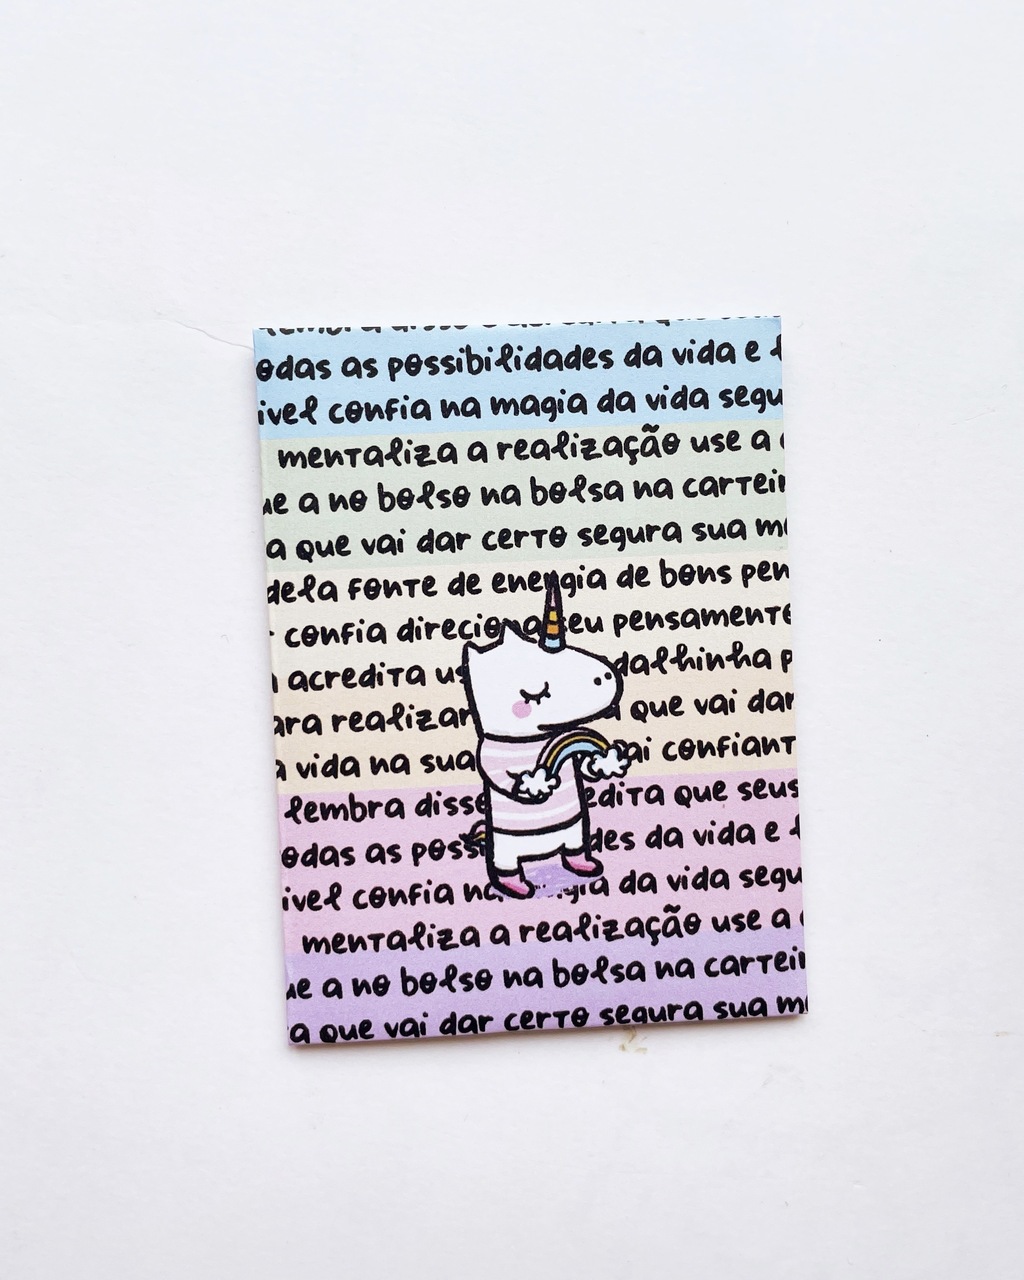 odas as possibilidades da vida e
ivel confia na magia da vida segu
mentaliza a realização use a
ue a no bolso na bolsa na carteir
a que vai dar certo segura sua m
dela fonte de energia de bons pen
confia direciona seu pensamento
acredita us dalhinha p
ara realizar a que vai dar
a vida na sua vai confiant
lembra disso edita que seus
odas as possi des da vida e
ivel confia na magia da vida segu
mentaliza a realização use a
ue a no bolso na bolsa na carteir
a que vai dar certo segura sua m